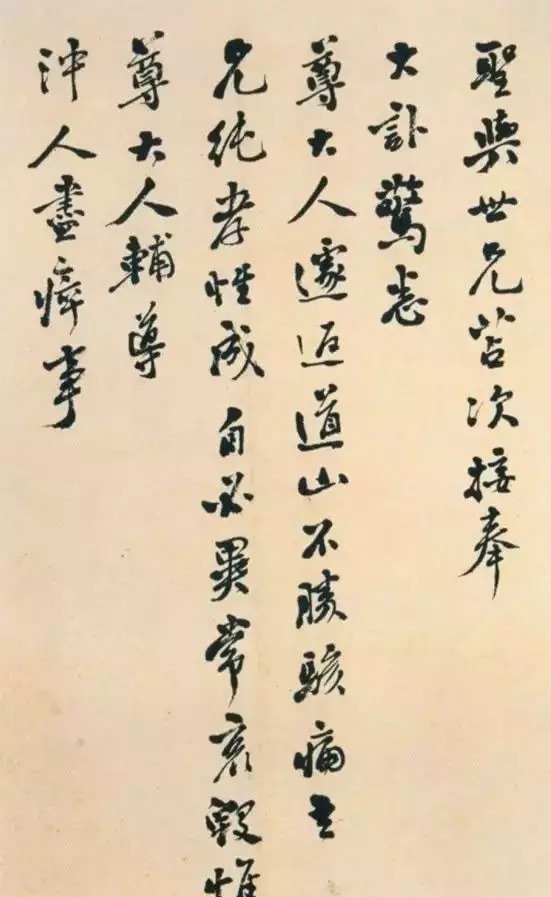 聖與世兄苫次接奉
大訃驚悉
尊大人遽返道山不勝駭痛吾
兄純孝性成自必異常哀毀惟
尊大人輔導
沖人盡瘁事